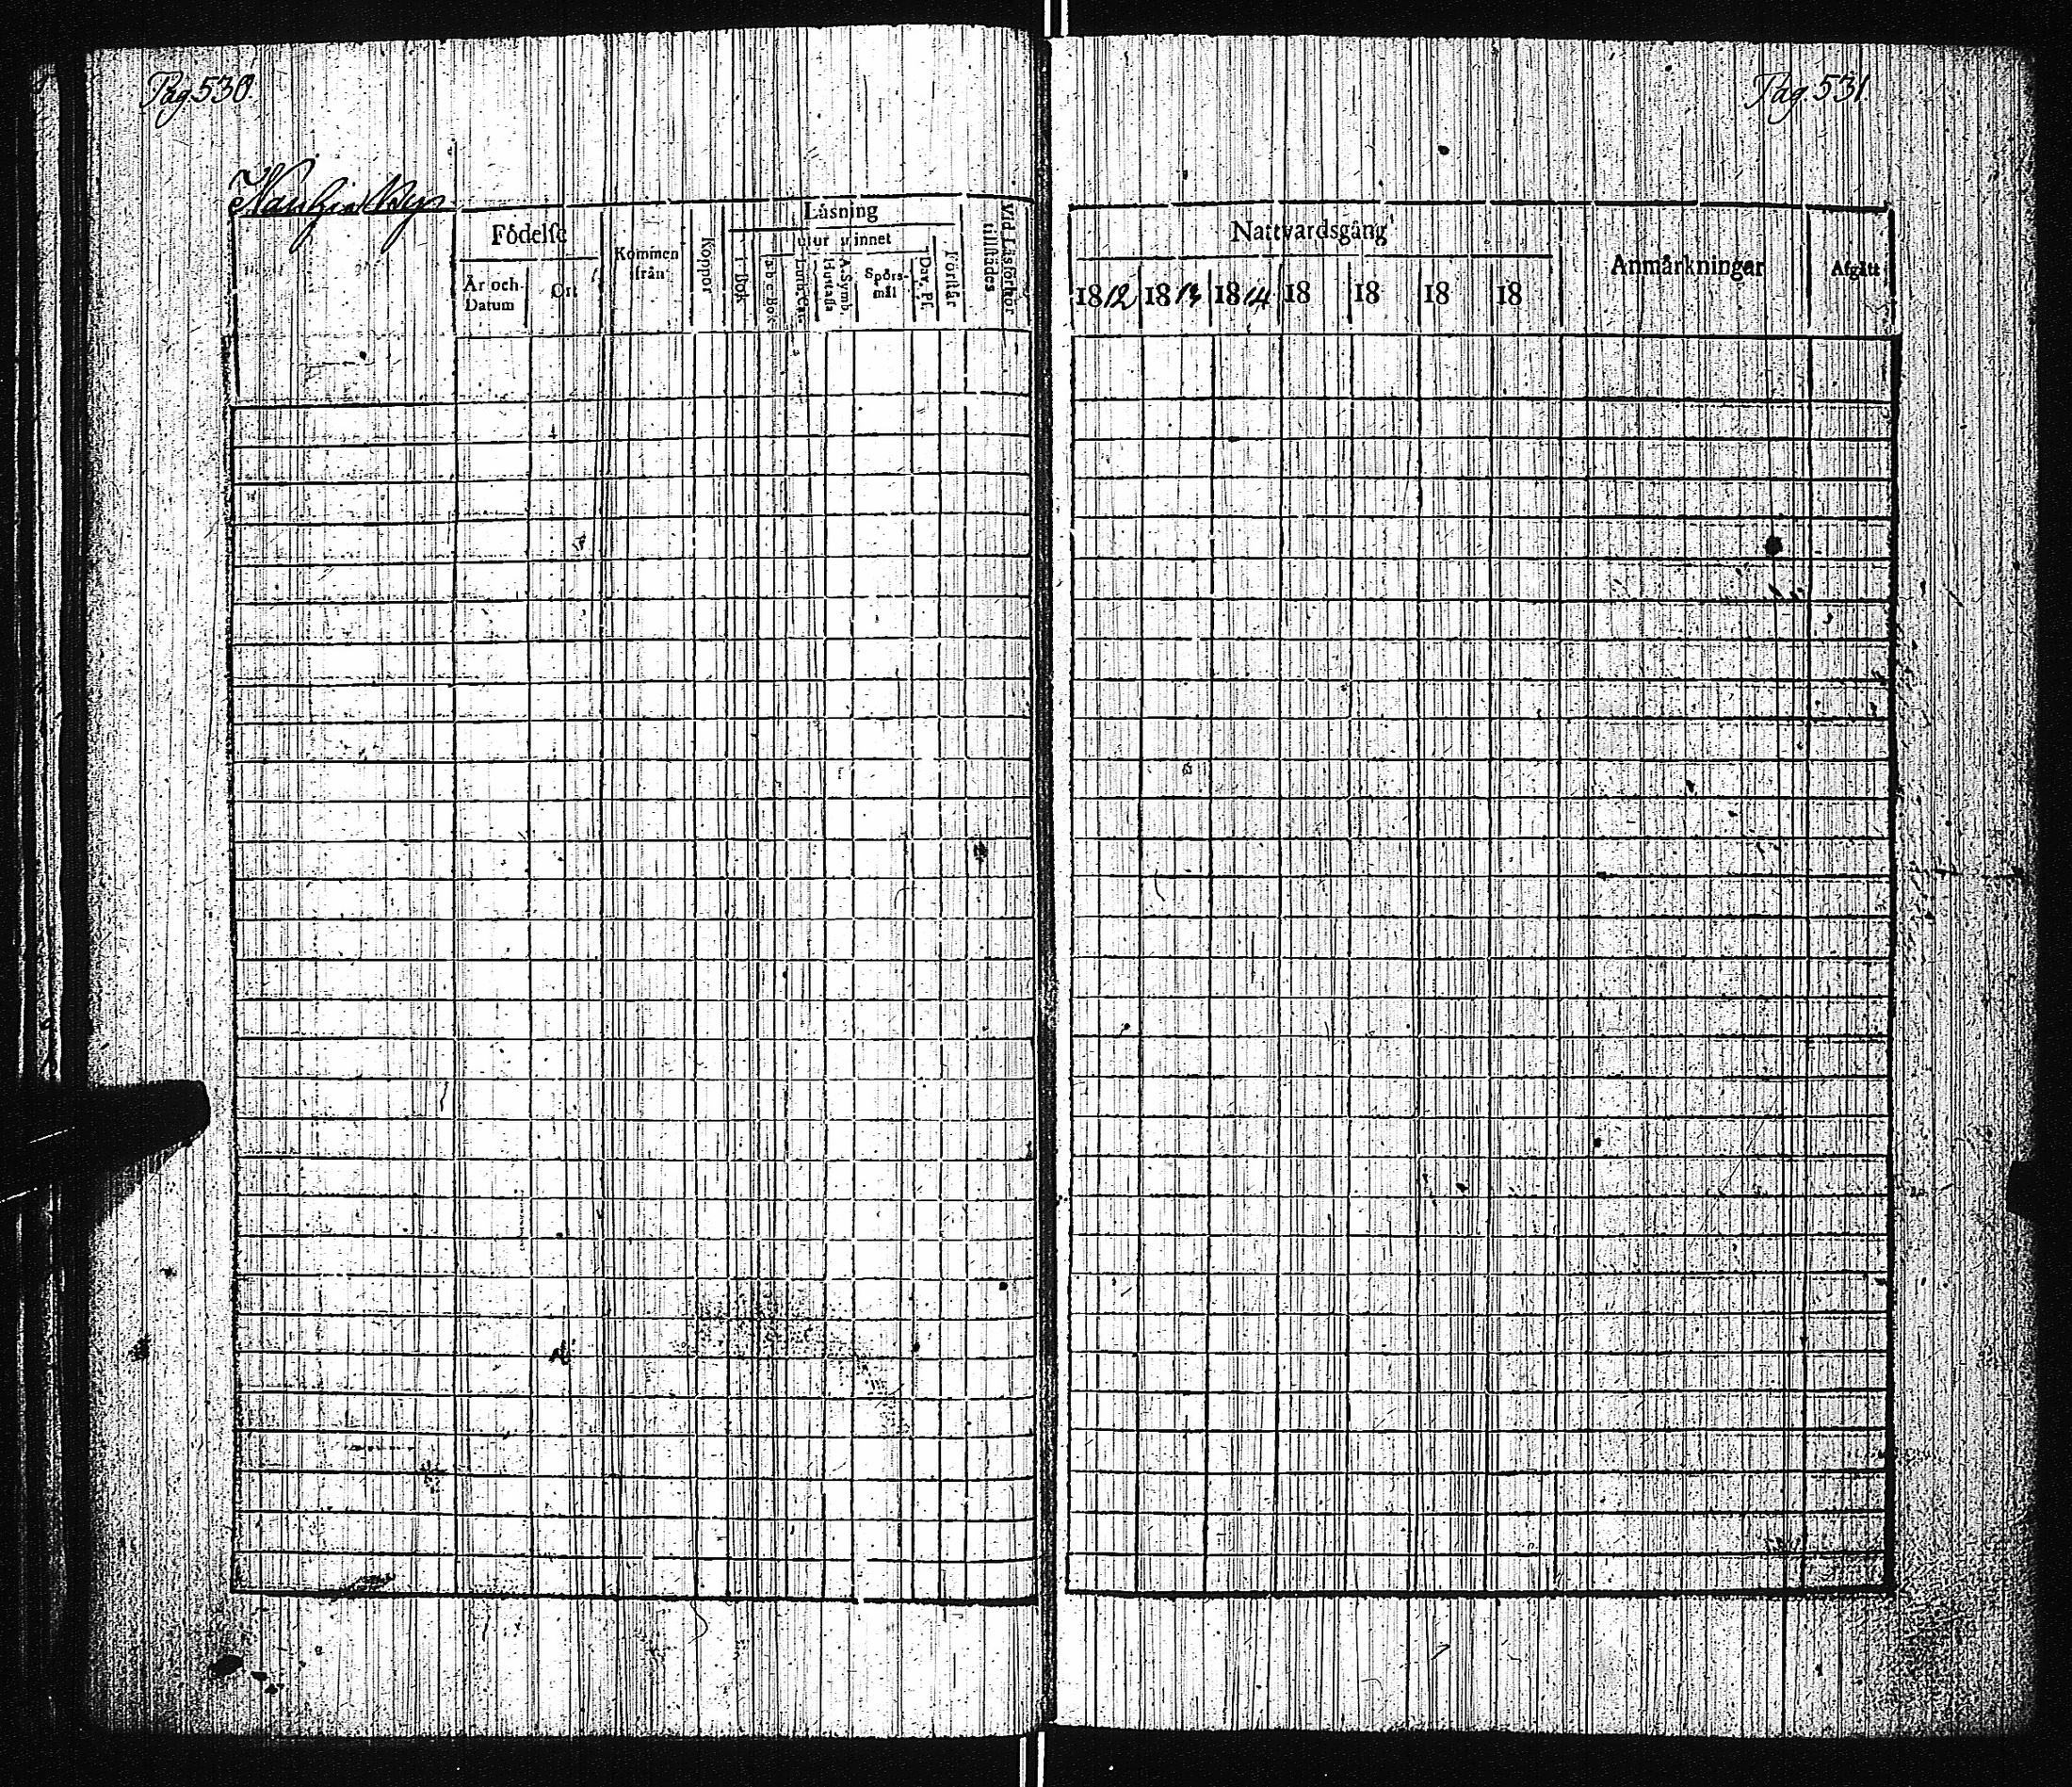 Pag 530
Pag. 531.
By
Födelse
År och Datum
Ort
Kommen ifrån
Koppor
Läsning
i Bok
utur minnet
a-b-c-Bok
Luth. Cat.
Hustafla
A. Symb.
Spörs-
mål
Dav. Ps.
Förstår
Vid Läsförhör
tillstädes
Nattvardsgång
1812 1813 1814 18 18 18 18
Anmärkningar
Afgått